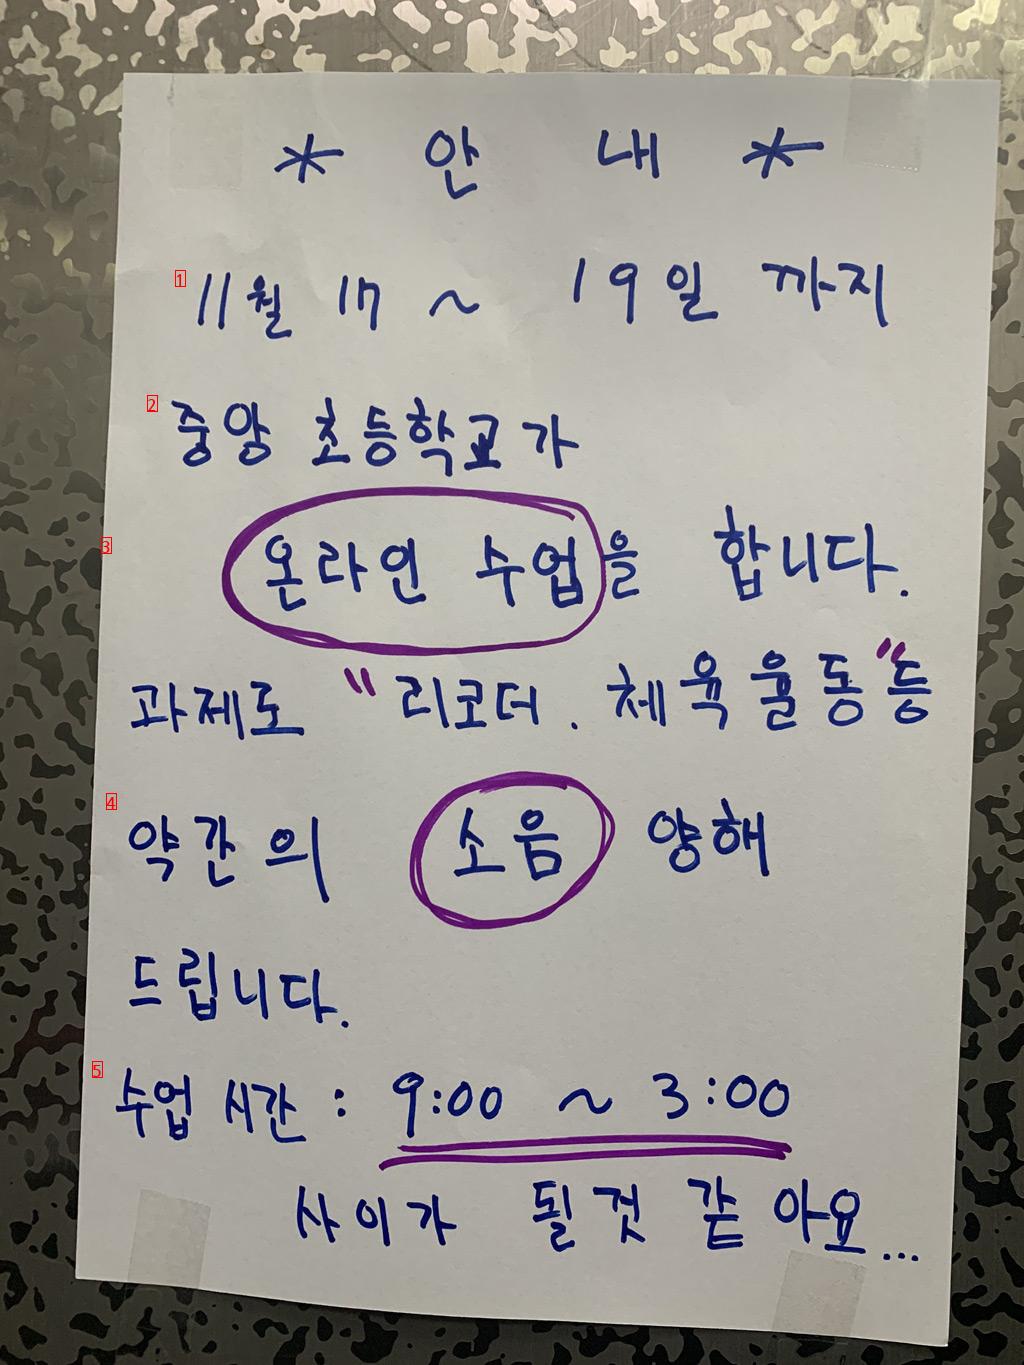 * 안 내 *
1 11월 17 ~ 19일 까지
2 중앙 초등학교가
3 온라인 수업을 합니다.
과제도 "리코더. 체육율동"등
4 약간의 소음 양해
드립니다.
5 수업 시간 : 9:00 ~ 3:00
사이가 될것 같아요...